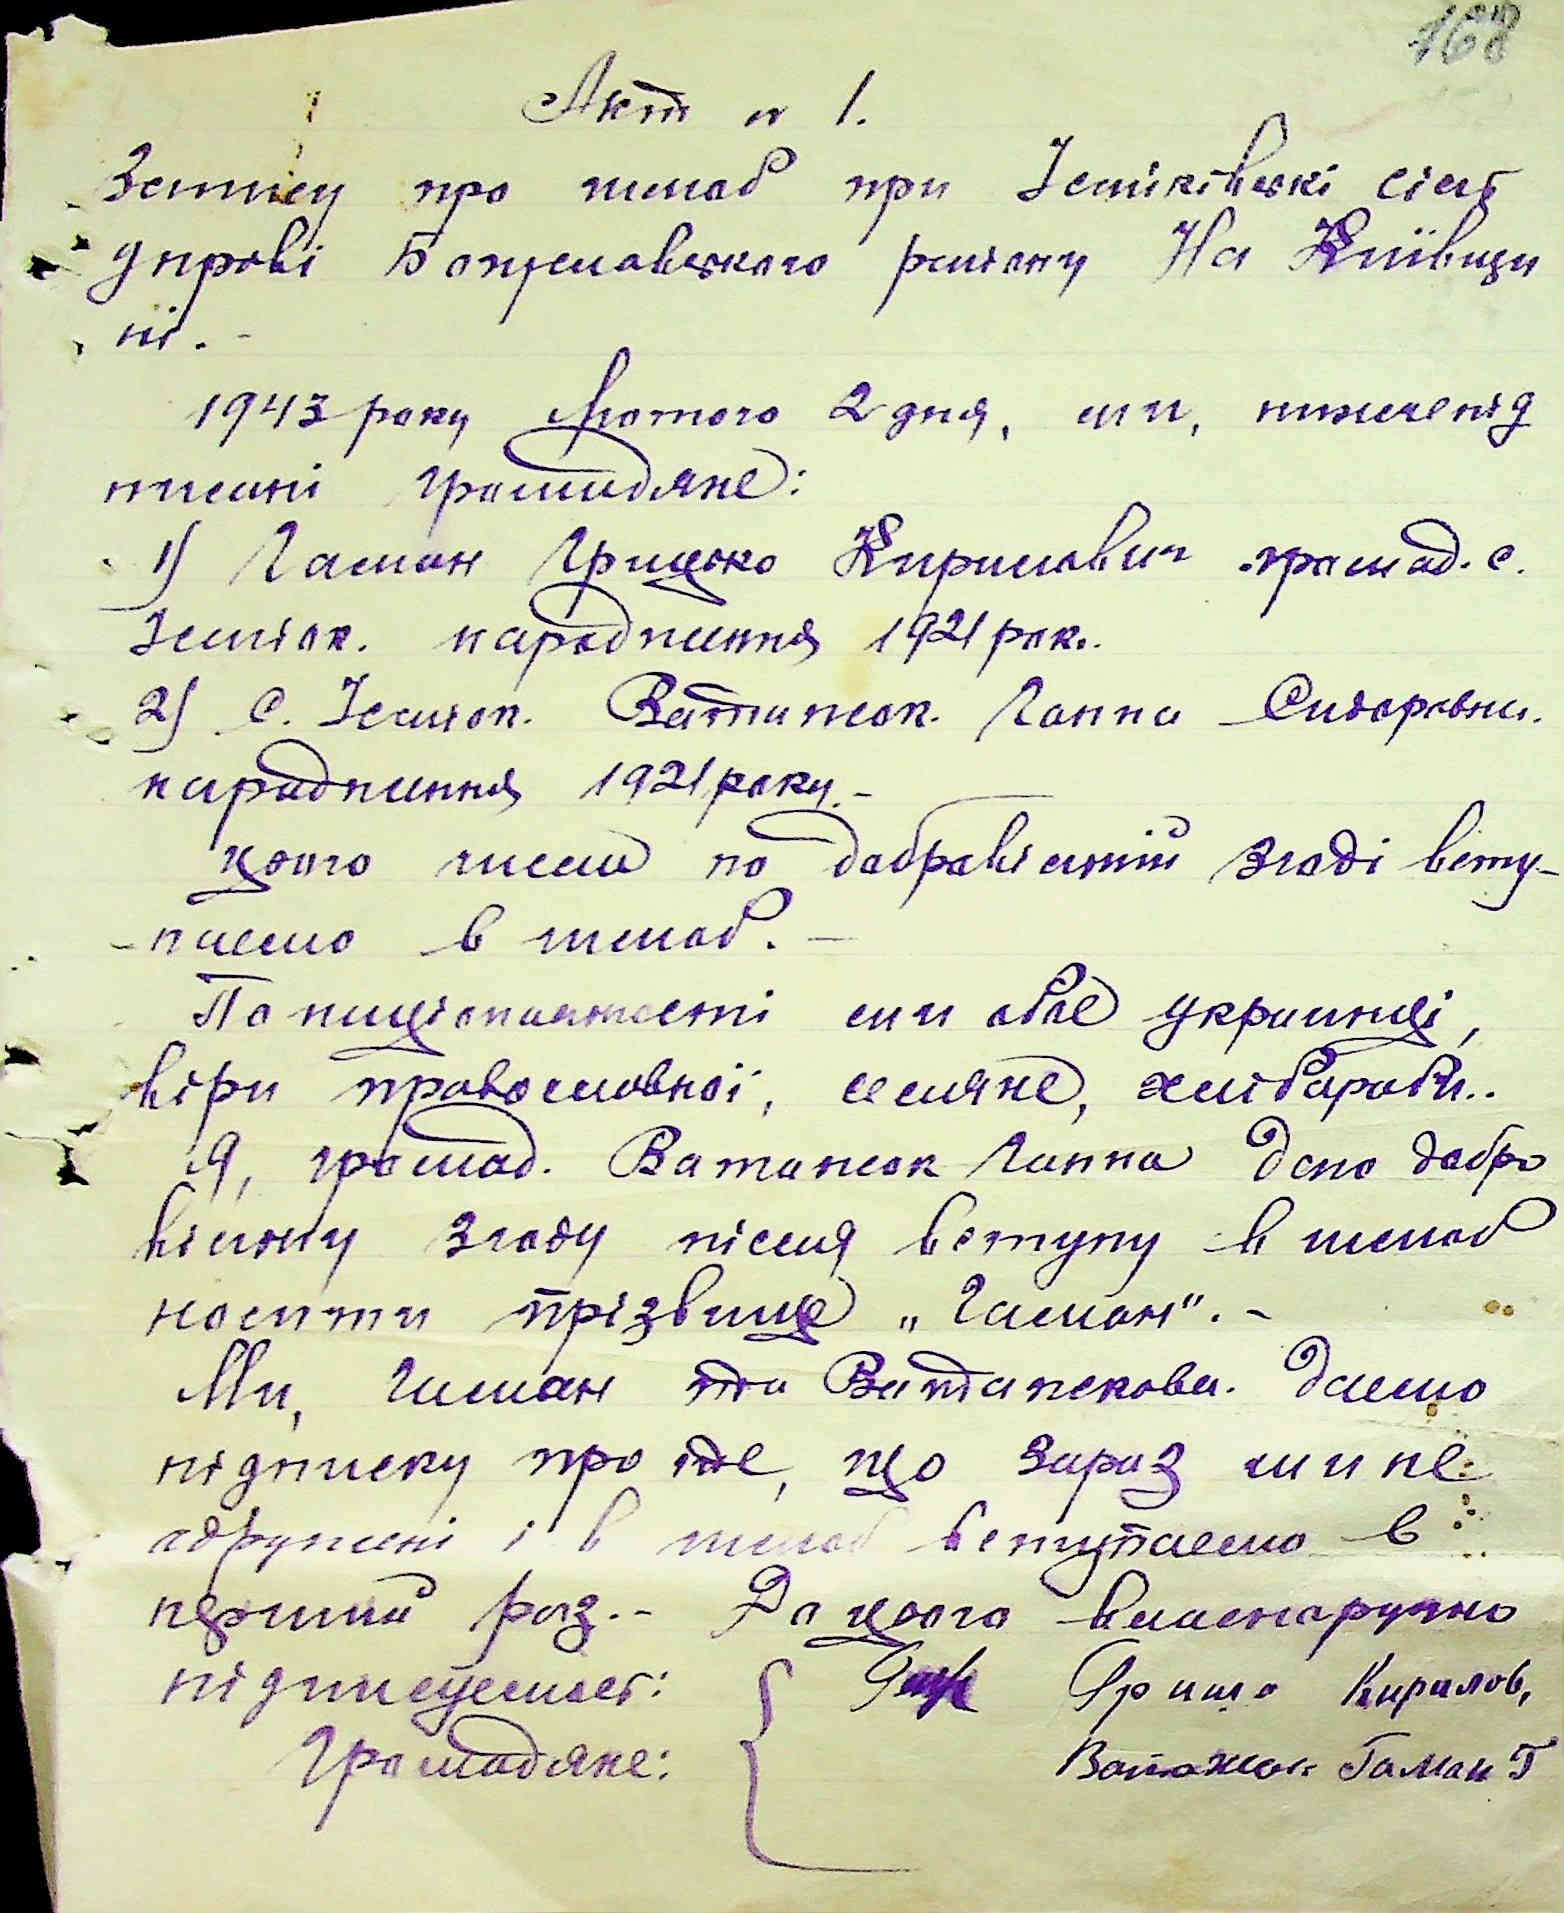 168
Акт № 1.
Запису про шлюб при Ісайківські сільс
управі Богуславського району На Київщи
ні. -
1943 року Лютого 2 дня, ми, нижчепід
писані громадяне:
1) Гаман Грицько Кирилович громад. с.
Ісайок. народження 1921 рок.
2) С. Ісайок. Ватажок. Ганна Сидоровна.
народження 1921 року. -
цього числа по добровільній згоді всту-
-паемо в шлюб. -
По національності ми обоє українці,
віри православної, селяне, хлібороби..
Я, громад. Ватажок Ганна даю добро
вільну згоду після вступу в шлюб
носити прізвище „Гаман". -
Ми, Гаман та Ватажкова. даємо
підписку про те, що зараз ми не
одружені і в шлюб вступаємо в
перший раз. - До цього власноручно
підписуємось: Грицко Кирилов,
Громадяне: Ватажок Гаман Г